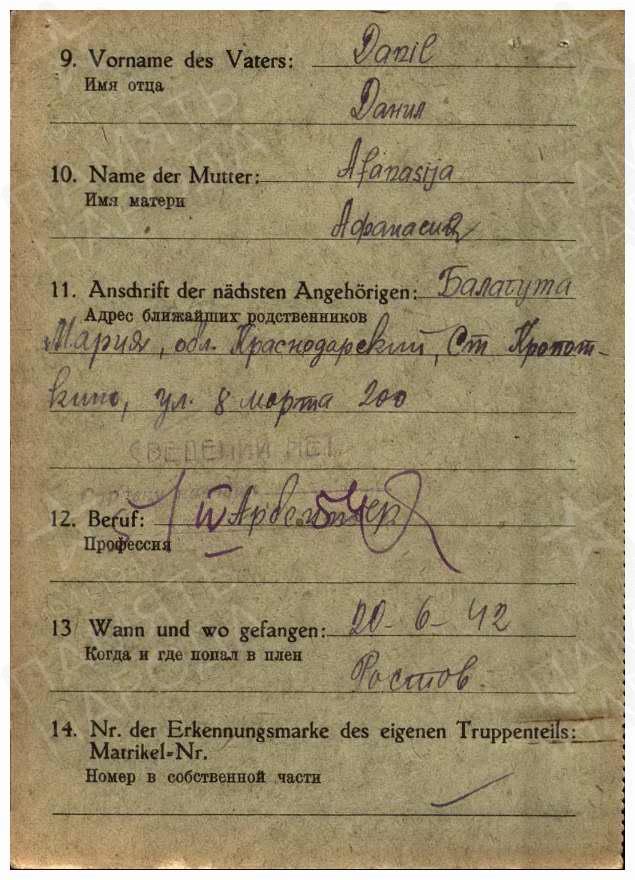 9. Vorname des Vaters: Danil
Имя отца
Данил
10. Name der Mutter: Afanasija
Имя матери
Афанасия
11. Anschrift der nächsten Angehörigen: Балагута
Адрес ближайших родственников
Мария, обл. Краснодарский, Ст Кропот-
кино, ул. 8 марта 200
СВЕДЕНИЙ НЕТ
12. Beruf: IV Арбейтер 54
Профессия
13 Wann und wo gefangen: 20-6-42
Когда и где попал в плен
Ростов.
14. Nr. der Erkennungsmarke des eigenen Truppenteils:
Matrikel-Nr.
Номер в собственной части